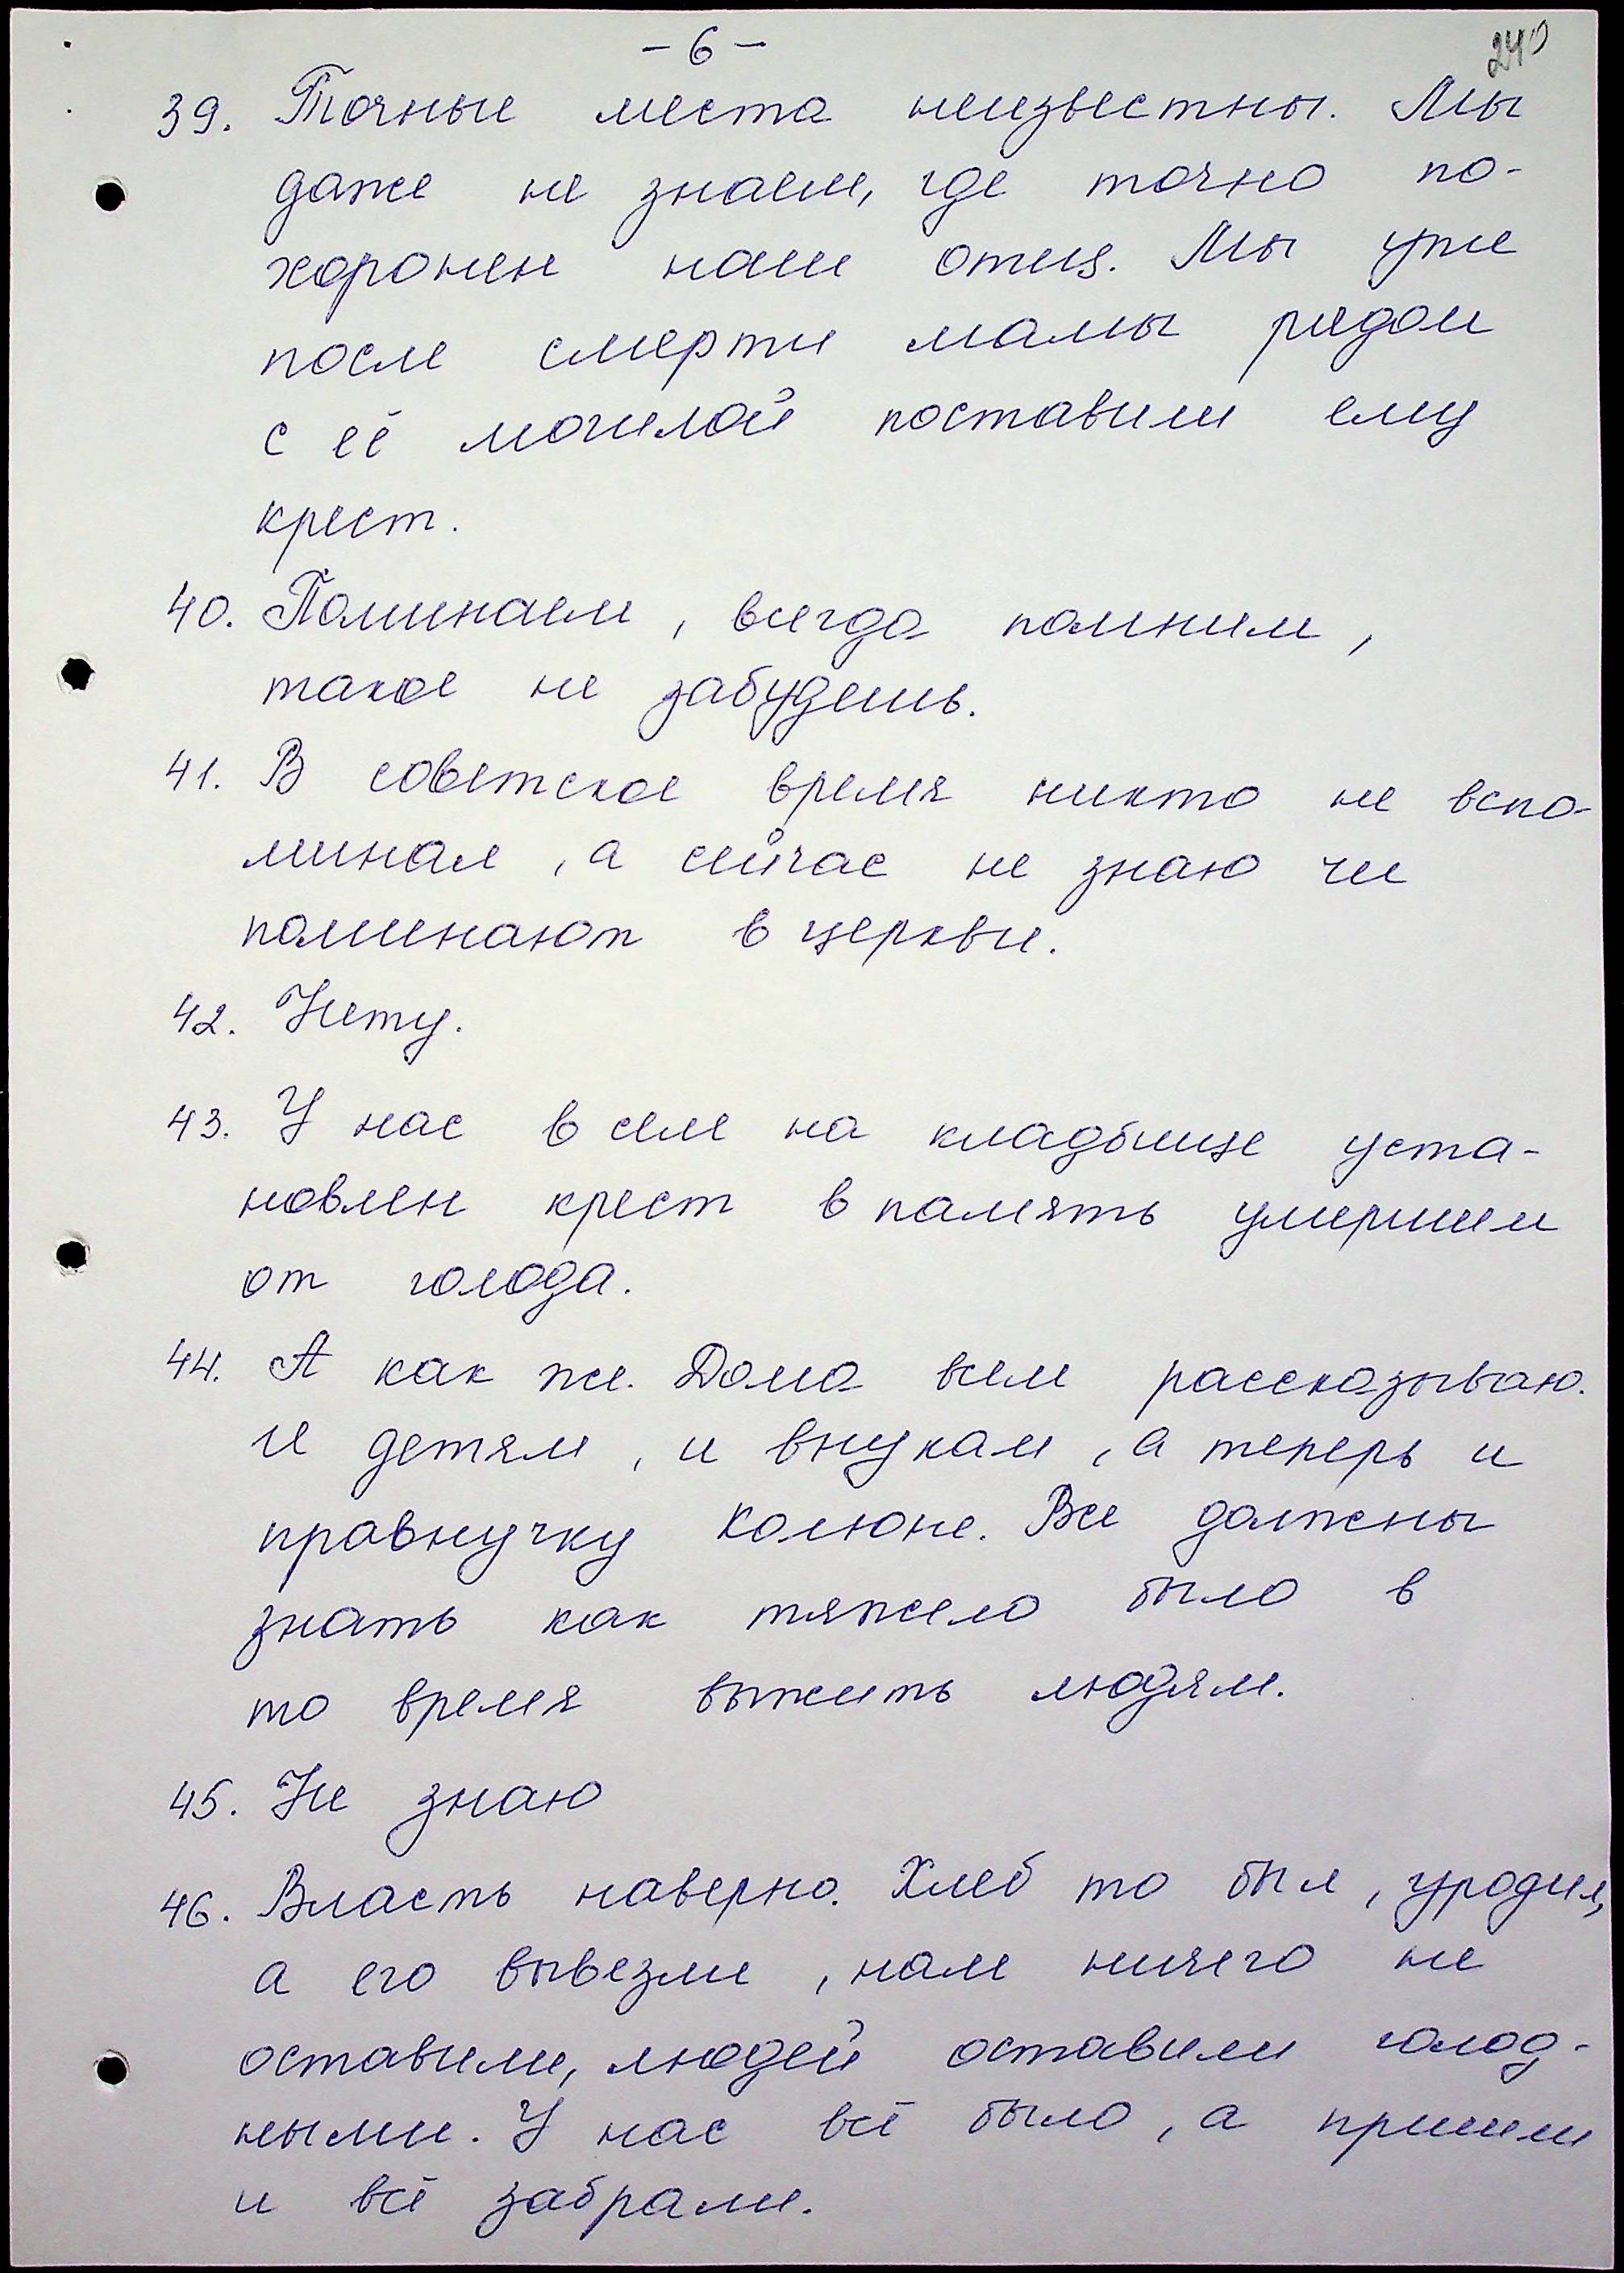 - 6 -
240
39. Точные места неизвестны. Мы
даже не знаем, где точно по-
хоронен наш отец. Мы уже
после смерти мамы рядом
с её могилой поставили ему
крест.
40. Поминаем, всегда помним,
такое не забудешь.
41. В советское время никто не вспо-
минал, а сейчас не знаю чи
поминают в церкви.
42. Нету.
43. У нас в селе на кладбище уста-
новлен крест в память умершим
от голода.
44. А как же. Дома всем рассказываю.
И детям, и внукам, а теперь и
правнучку Колюне. Все должны
знать как тяжело было в
то время выжить людям.
45. Не знаю
46. Власть наверно. Хлеб то был, уродил,
а его вывезли, нам ничего не
оставили, людей оставили голод-
ными. У нас всё было, а пришли
и всё забрали.